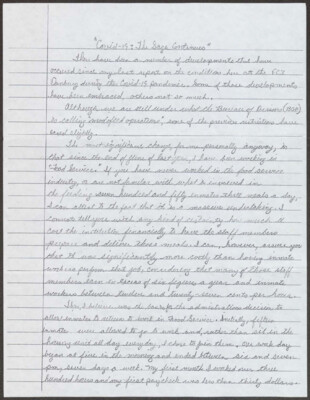 "Covid-19: The Saga Continues"
There have been a number of developments that have
occured since my last report on the conditions here at the
during the Covid-19 pandemic. Some of these developments
have been welcomed, others not so much.
Although we are still under what the Bureau of Prisons (BOP)
is calling "modified operations", some of the previous restrictions have
eased slightly.
The most significant change, for me personally anyway, is
that since the end of June of last year, I have been working in
"Food Service." If you have never worked in the food service
industry or are not familiar with what is involved in
the feeding seven hundred and fifty inmates three meals a day,
I can attest to the fact that it is a massive undertaking. I
cannot tell you with any kind of certainty how much it
cost the institution financially to have the staff members
prepare and deliver those meals. I can, however, assure you
that it was significantly more costly than having inmate
workers perform that job, considering that many of those staff
members earn in excess of six figures a year, and inmate
workers between twelve and twenty-seven cents per hour.
This, I believe, was the basis for the administration's decision to
allow inmates to return to work in Food Service. Initially, fifteen
inmates were allowed to go to work and, rather than sit in the
housing unit all day everyday, I chose to join them. Our work day
began at five in the morning and ended between six and seven
pm, seven days a week. My first month I worked over three
hundred hours and my first paycheck was less than thirty dollars.